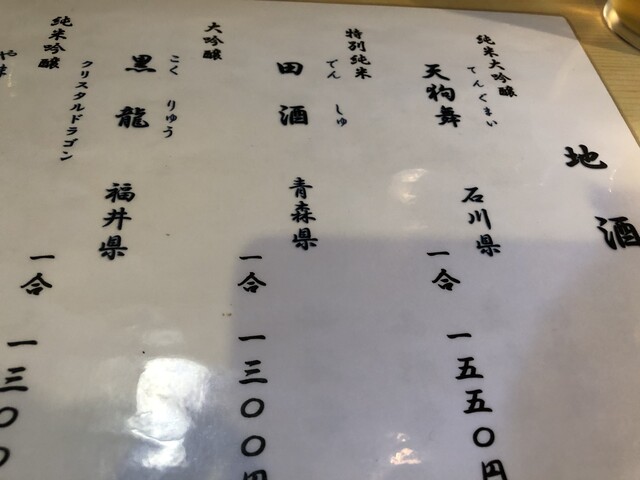 地酒
純米大吟醸
てんぐまい
天狗舞 石川県 一合 一五五〇円
特別純米
でんしゅ
田酒 青森県 一合 一三〇〇円
大吟醸
こくりゅう
黒龍 福井県 一合 一三〇〇
クリスタルドラゴン
純米吟醸